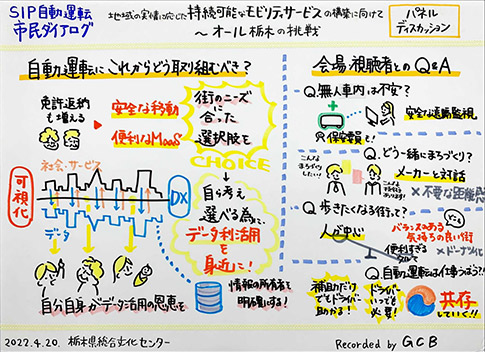 SIP自動運転
市民ダイアログ
地域の実情に応じた持続可能なモビリティサービスの構築に向けて
〜オール栃木の挑戦
パネル
ディスカッション
自動運転にこれからどう取り組むべき?
免許返納
も増える
安全な移動
便利なMaaS
街のニーズ
に合った
選択肢を
CHOICE
社会・サービス
可視化
DX
データ
自ら考え
選べる為に、
データ利活用を
身近に!
自分自身がデータ活用の恩恵を
情報の所有者を
明確にする!
会場・視聴者とのQ&A
Q.無人車内は不安?
安全な遠隔監視
保安要員も!
Q.どう一緒にまちづくり?
こんな
まちづくり
したい!
メーカーと対話
×不要な距離感
Q.歩きたくなる街って?
人が中心
バラツキある
気持ちの良い街
便利すぎる
×ドーナツ化
Q.自動運転は仕事うばう?!
補助だけ
でもドライバー
助かる!
ドライバー
いつでも
必要!
共存
していく!!
2022.4.20. 栃木県総合文化センター
Recorded by GCB